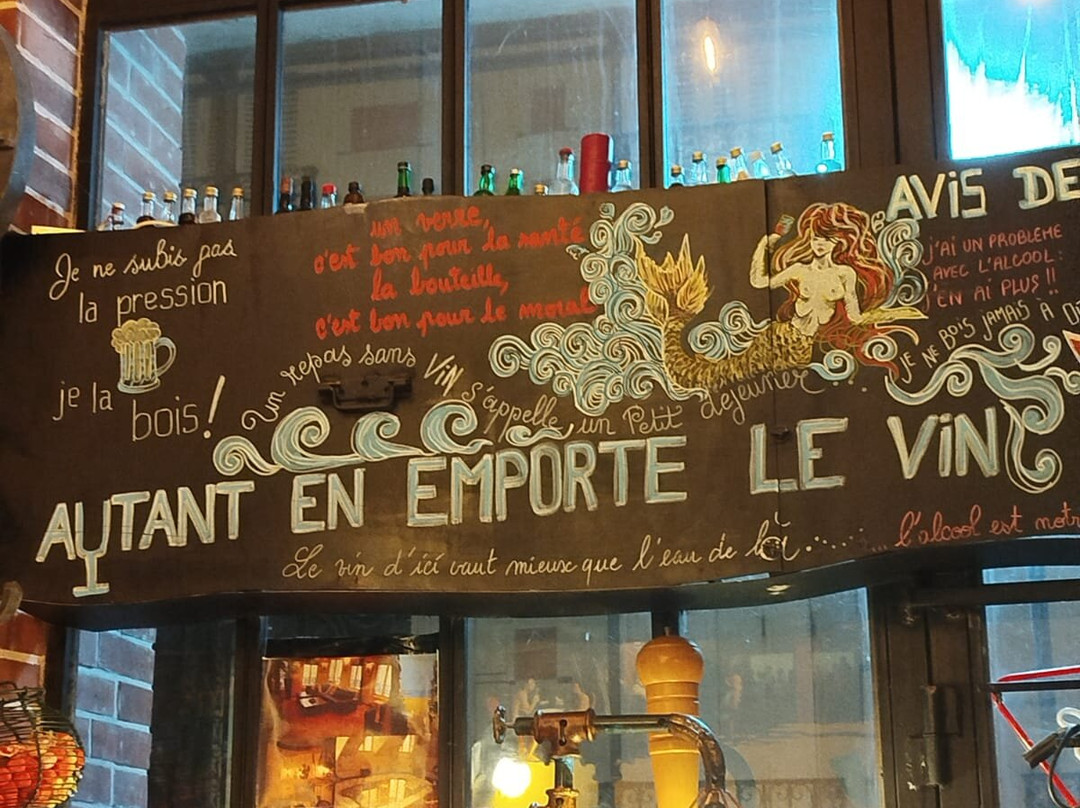 Je ne subis pas
la pression
je la
bois!
un verre,
c'est bon pour la santé
la bouteille,
c'est bon pour le moral
Un repas sans ViN s'appelle un Petit déjeuner...
AVIS DE
J'AI UN PROBLEME
AVEC L'ALCOOL:
J'EN AI PLUS!!
JE NE BOIS JAMAIS À
AUTANT EN EMPORTE LE ViN
Le vin d'ici vaut mieux que l'eau de là.......
... l'alcool est notr